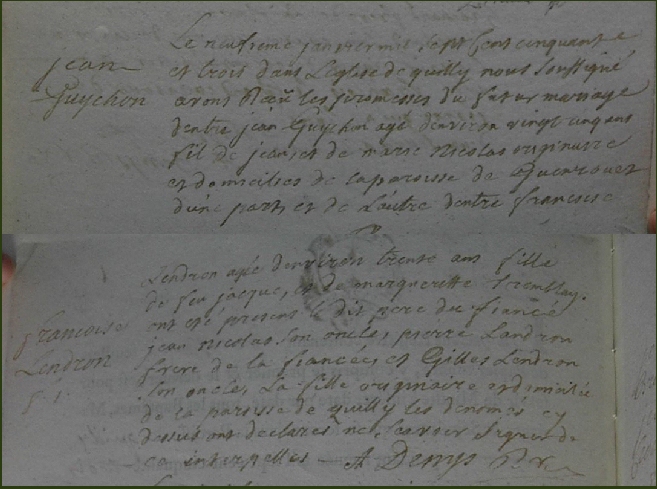 jean
Guychon
Le neufieme janvier mil sept Cent cinquante
et trois dans Leglise de quilly nous soussigné
avons Reçu les promesses du futur mariage
dentre jean Guychon agé denviron vingt cinq ans
fil de jean, et de marie Nicolas originaire
et domicilies de la paroisse de Guenrouet
dune part, et de Lautre dentre francoise
francoise
Lendron
Lendron agée denviron trente ans fille
de feu jacque, et de marguerette Tremblay.
ont eté present Le dit pere du fiancé
jean Nicolas Son oncle, pierre Landron
frere de la fiancee, et Gilles Lendron
Son oncle, La fille originaire et domiciliée
de la paroisse de quilly les denomés cy
dessus ont declares ne scavoir Signer de
ce interpelles — A Denys